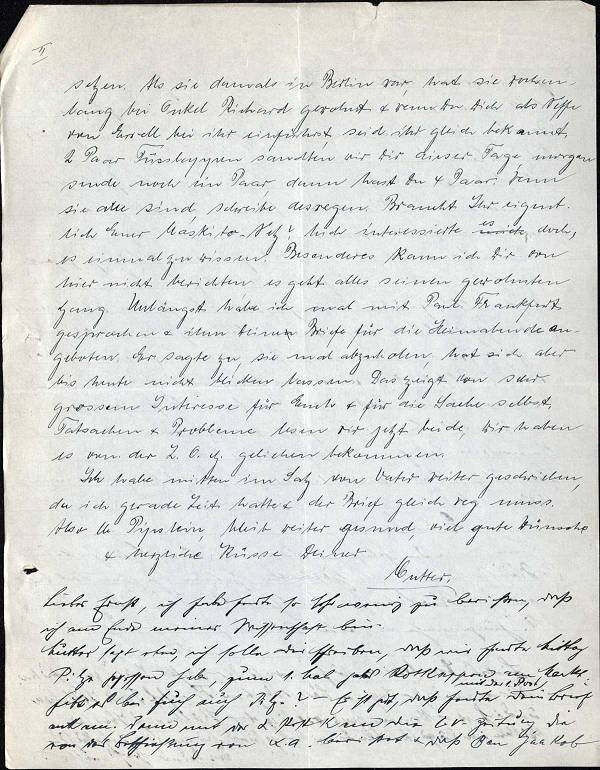 II
setzen. Als sie damals in Berlin war, hat sie wochen-
lang bei Onkel Richard gewohnt & wenn Du Dich als Neffe
von bei ihr einführst, seid ihr gleich bekannt.
2 Paar Fusslappen sandten wir Dir dieser Tage, morgen
sende noch ein Paar, dann hast Du 4 Paar. Wenn
sie alle sind, schreibe deswegen. Braucht Ihr eigent-
lich Euer Moskito-Netz? Mich interessierte es doch,
es einmal zu wissen. Besonderes kann ich Dir von
hier nicht berichten es geht alles seinen gewohnten
Gang. Unlängst habe ich mal mit Paul Frankfurt
gesprochen & ihm Deine Briefe für die Heimabende an-
geboten. Er sagte zu, sie mal abzuholen, hat sich aber
bis heute nicht blicken lassen. Das zeigt von sehr
grossem Interesse für Euch & für die Sache selbst.
Tatsachen & Probleme lesen wir jetzt beide, wir haben
es von der Z. O. G. geliehen bekommen.
Ich habe mitten im Satz von Vater weiter geschrieben,
da ich gerade Zeit hatte & der Brief gleich weg muss.
Also bleib weiter gesund, viel gute Wünsche
& herzliche Küsse Deiner
Mutter.
Lieber Ernst, ich habe heute so sehr wenig zu berichten, daß
ich am Ende meiner Wissenschaft bin.
Mutter sagt eben, ich solle Dir schreiben, daß wir heute Mittag
Pilze gegessen habe, zum 1. Mal
es bei Euch auch Pilze? – Es ist gut, daß heute mit der 1. Post Dein Brief
ankam. Denn mit der 2. Post kam die C.V. Zeitung die
von der Beschießung von & daß Ben Jaakob